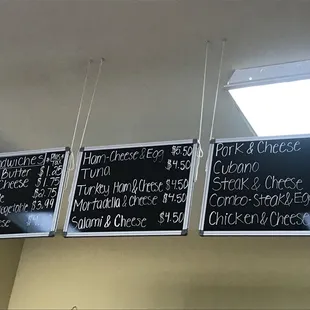 Sandwiches
Butter $1.25
Cheese $1.75
$2.75
$3.99
Ham-Cheese & Egg $5.50
Tuna $4.50
Turkey Ham & Cheese $4.50
Mortadella & Cheese $4.50
Salami & Cheese $4.50
Pork & Cheese
Cubano
Steak & Cheese
Combo-Steak & Egg
Chicken & Cheese